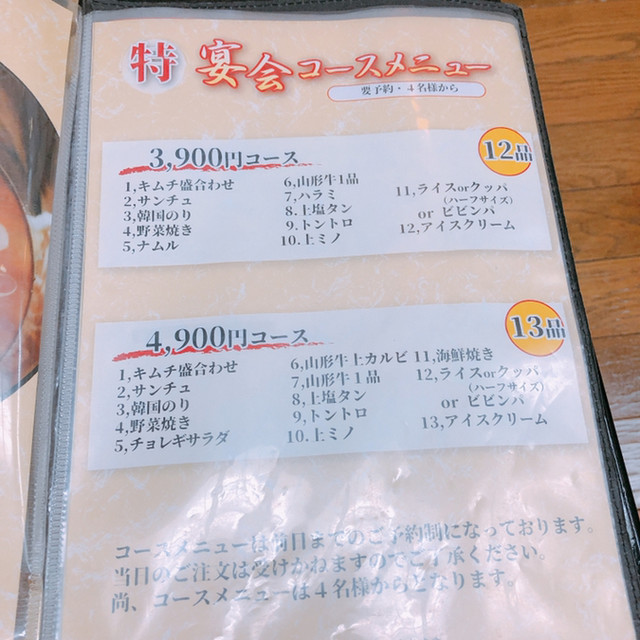 特 宴会コースメニュー
要予約・4名様から
3,900円コース
12品
1,キムチ盛合わせ
2,サンチュ
3,韓国のり
4,野菜焼き
5,ナムル
6,山形牛1品
7,ハラミ
8,上塩タン
9,トントロ
10,上ミノ
11,ライスorクッパ
(ハーフサイズ)
or ビビンバ
12,アイスクリーム
4,900円コース
13品
1,キムチ盛合わせ
2,サンチュ
3,韓国のり
4,野菜焼き
5,チョレギサラダ
6,山形牛上カルビ
7,山形牛1品
8,上塩タン
9,トントロ
10,上ミノ
11,海鮮焼き
12,ライスorクッパ
(ハーフサイズ)
or ビビンバ
13,アイスクリーム
コースメニューは前日までのご予約制になっております。
当日のご注文は受けかねますのでご了承ください。
尚、コースメニューは4名様からとなります。